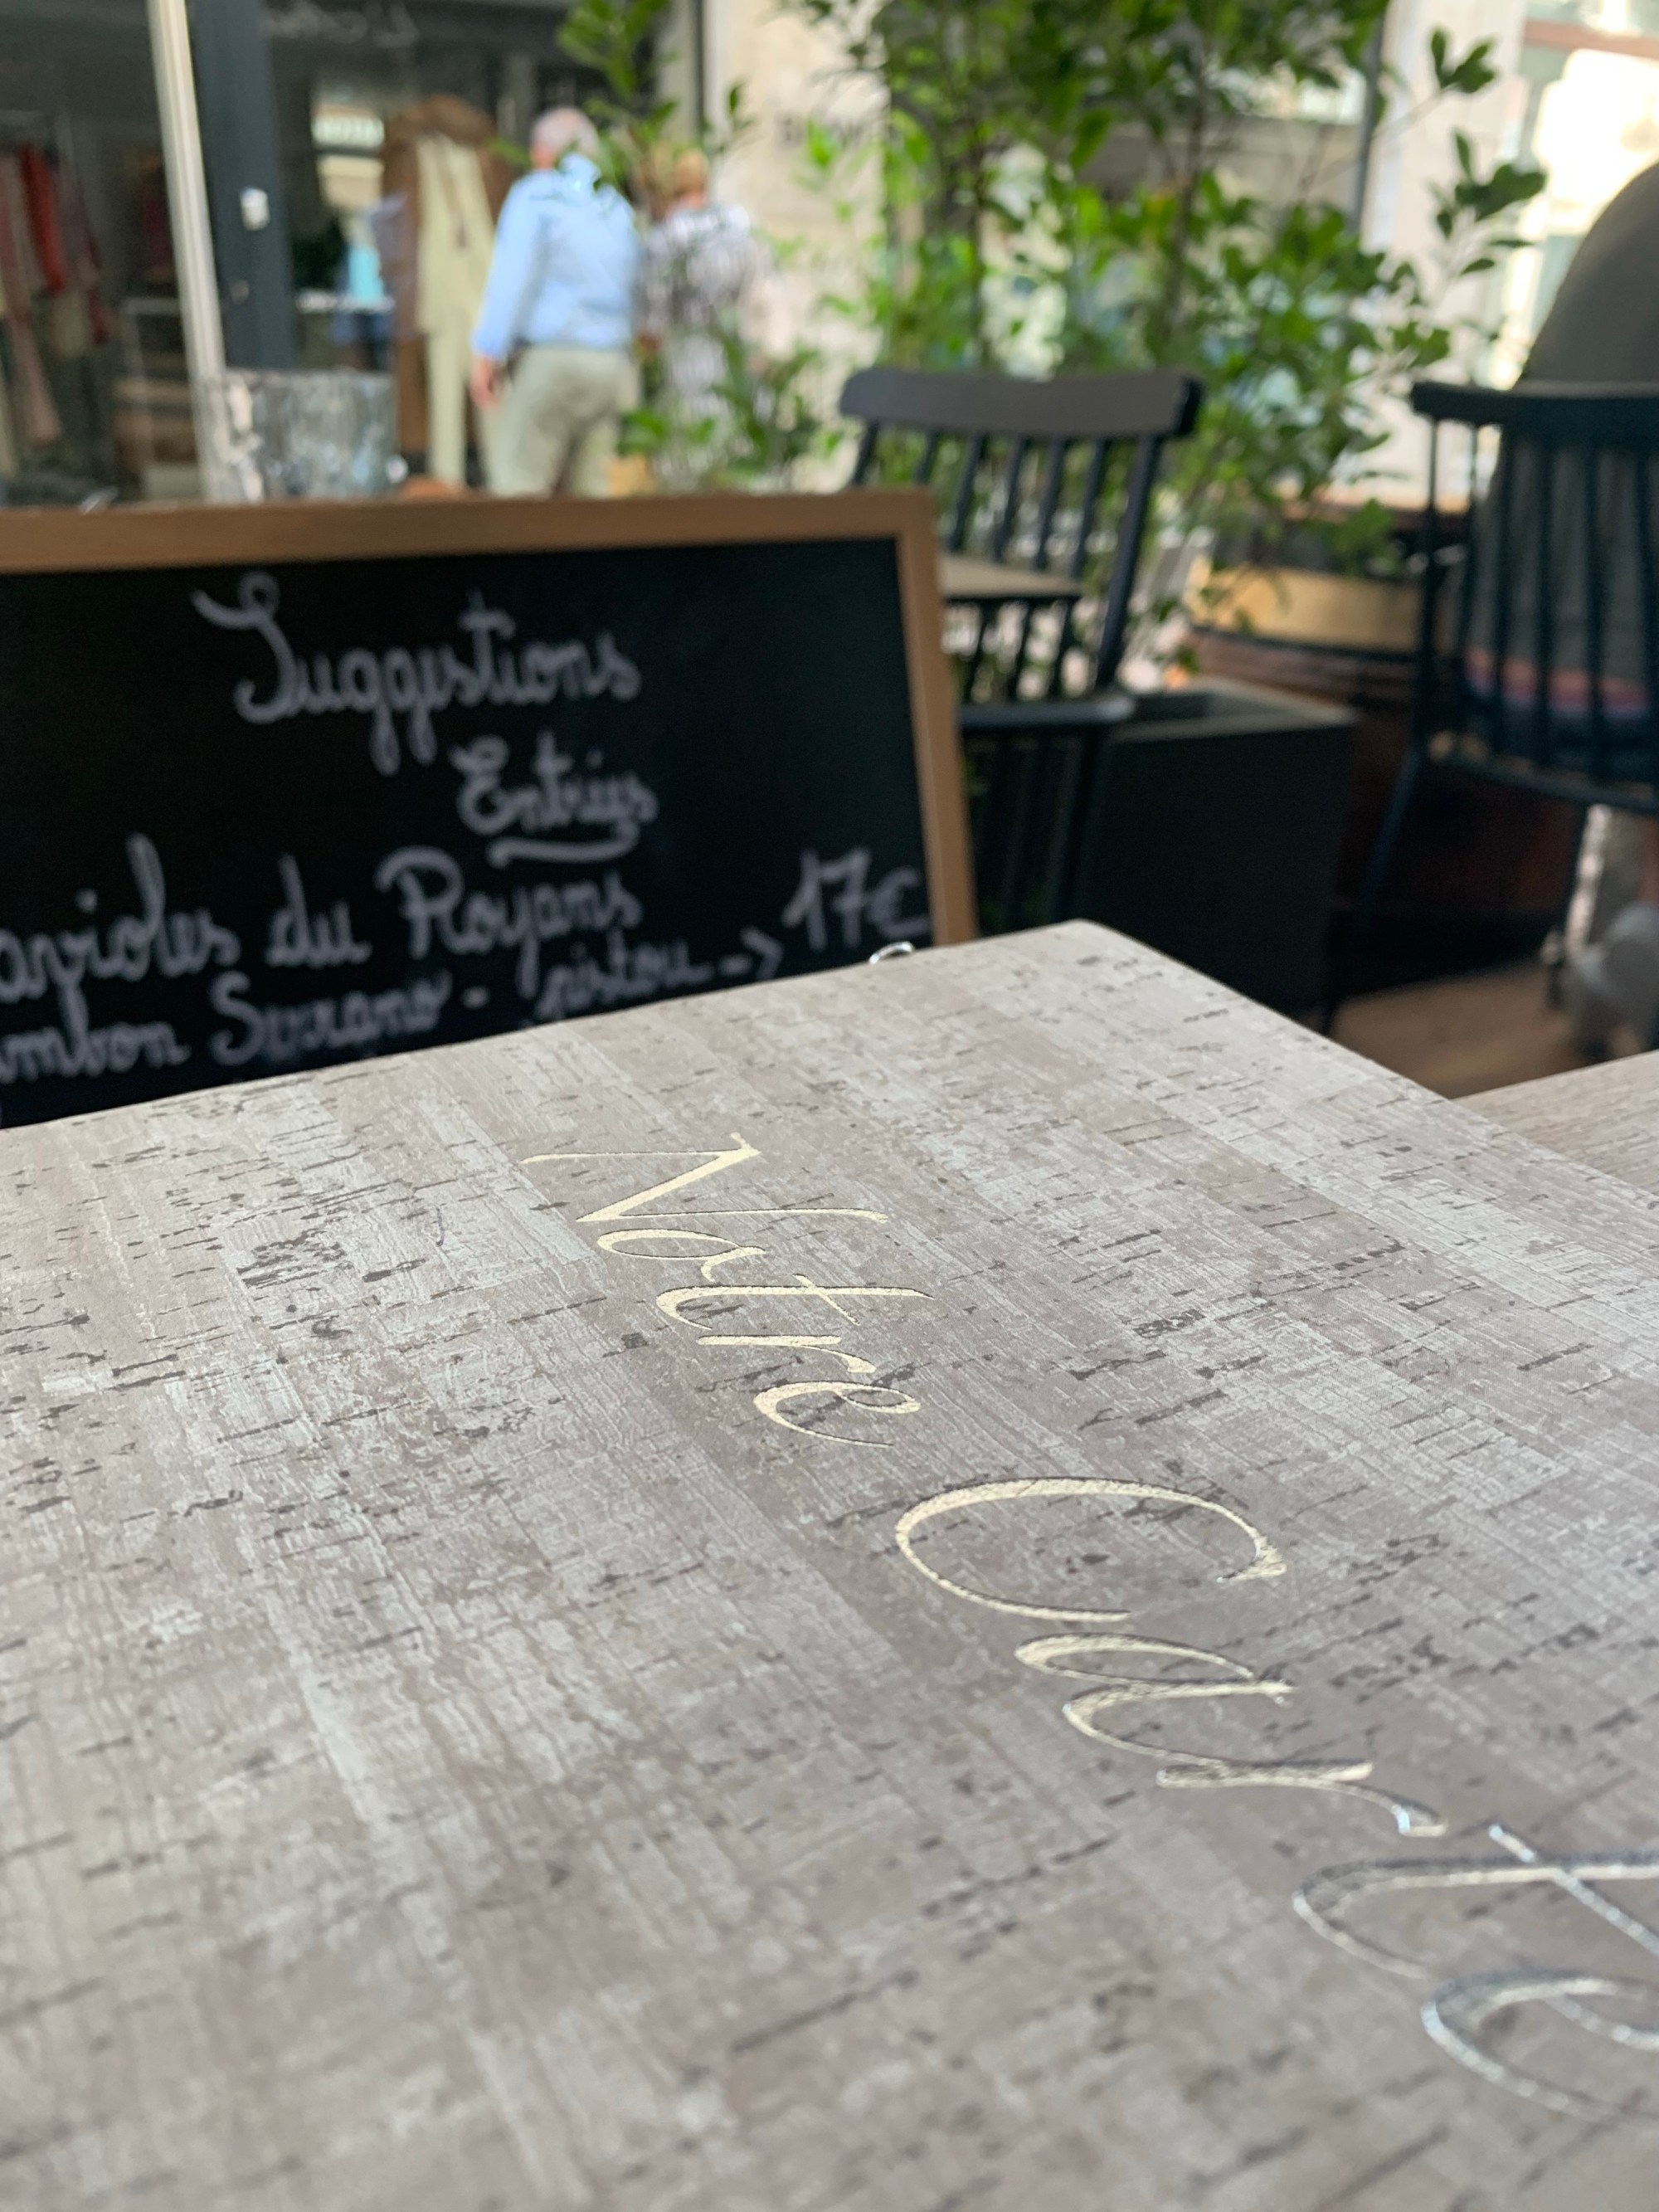 Suggestions
Entrées
avioles du Royans
ambon Serrano - pistou -> 17€
Notre Carte